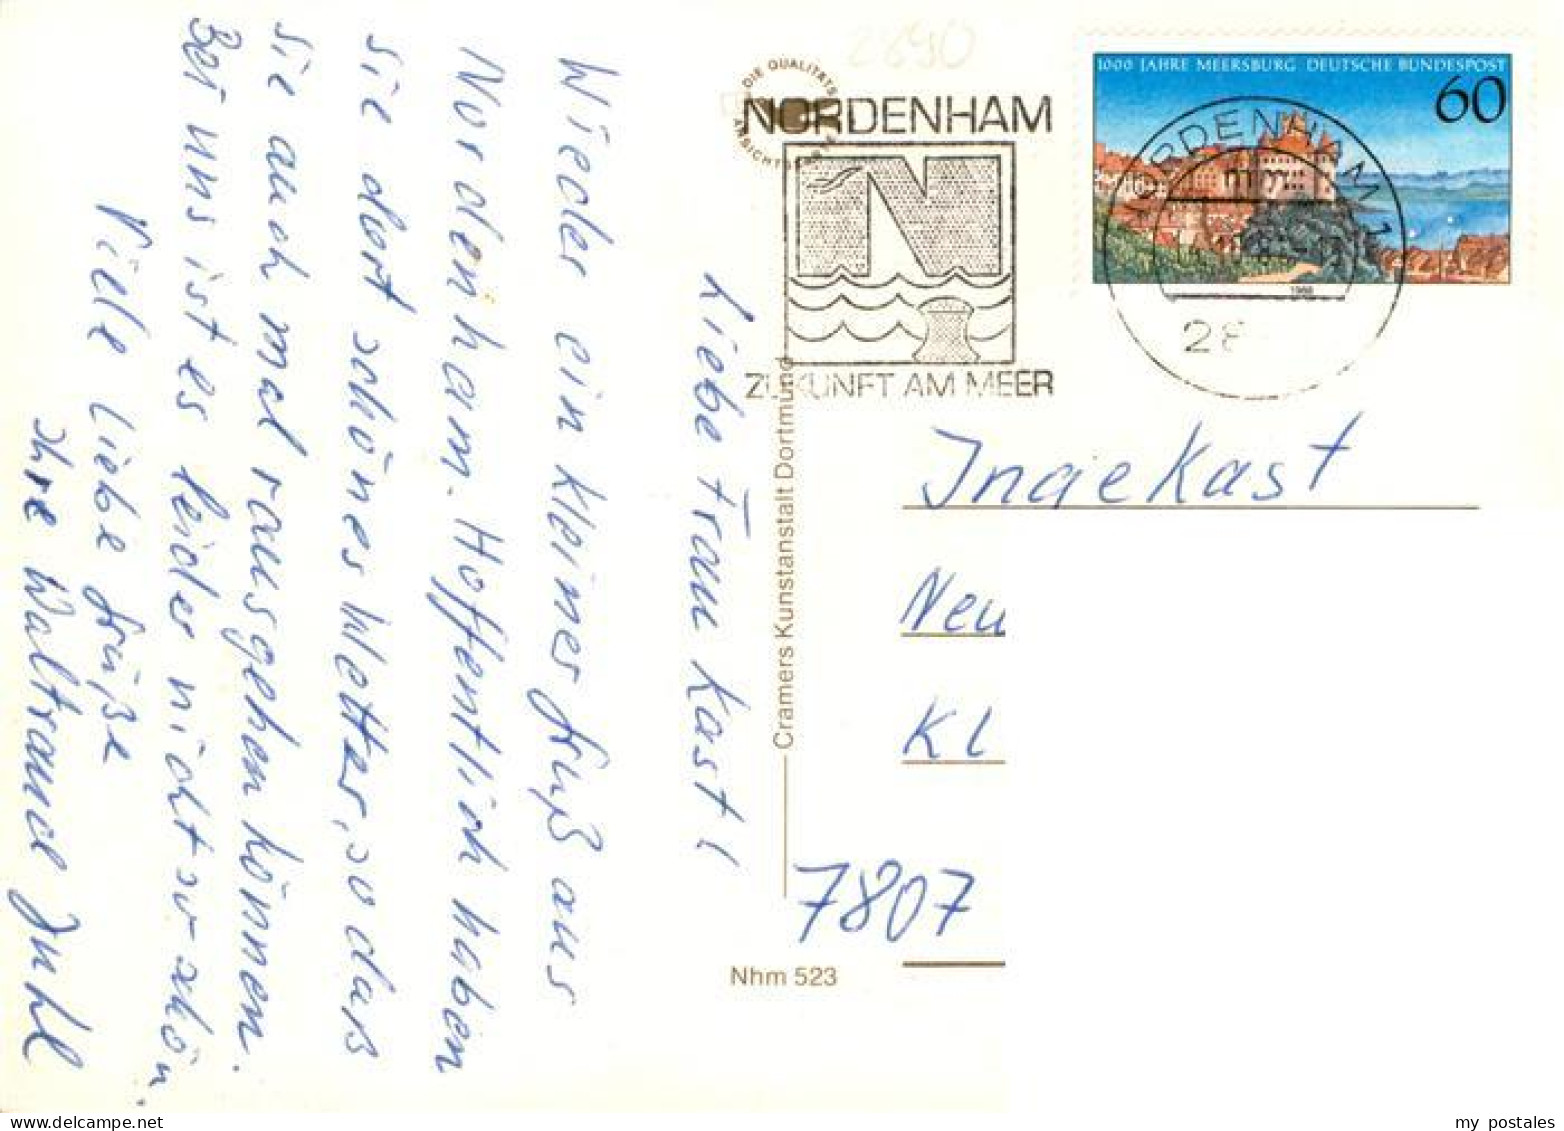 Liebe Frau Kast!
Wieder ein kleiner Gruß aus
Nordenham. Hoffentlich haben
Sie dort schönes Wetter, so daß
Sie auch mal rausgehen können.
Bei uns ist es leider nicht so schön.
Viele liebe Grüße
Ihre Waltraud Juhl
2890
DIE QUALITÄTS
ANSICHTSKARTE
NORDENHAM
N
ZUKUNFT AM MEER
1000 JAHRE MEERSBURG DEUTSCHE BUNDESPOST
60
1988
NORDENHAM 1
28
Cramers Kunstanstalt Dortmund
Inge Kast
Neu
Kl
7807
Nhm 523
my postales